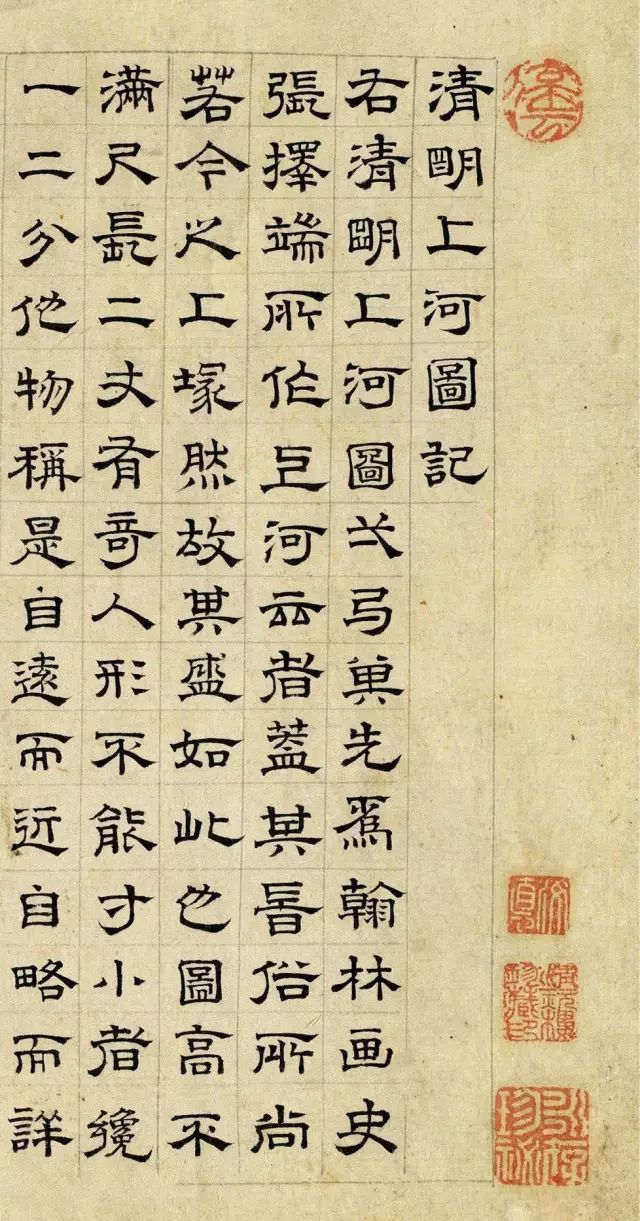 清明上河圖記
右清明上河圖弌弓先爲翰林画史
張擇端所作河云者蓋其旹俗所尚
若今之上塚然故其盛如此也圖高不
滿尺長二丈有竒人形不能寸小者纔
一二分他物稱是自遠而近自略而詳